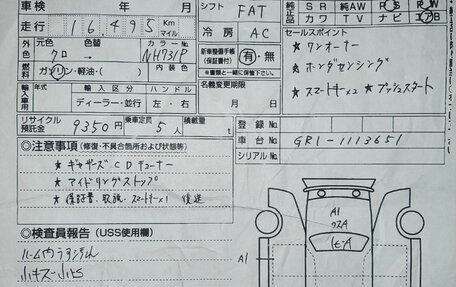 車検 年 月 シフト FAT 純正品 SR 純AW PS PW
走行 16,495 Km マイル 冷房 AC カワ TV ナビ エアB
外色 元色 クロ → 色替 カラーNo NH731P 新車整備手帳(保証書付) 有・無 セールスポイント
★ワンオーナー
燃料 ガソリン・軽油・( ) 内装色 *書類と一緒に保管下さい。 ★ホンダセンシング
輸入車用 年式 モデル ディーラー・並行 ハンドル 左・右 名義変更期限 月 日 ★スマートキー×2 ★プッシュスタート
リサイクル預託金 9350円 乗車定員 5人 積載量 t 登録No.
車台No. GR1-1113651
◎注意事項(修復・不具合箇所および状態等) シリアルNo.
★ギャザーズCDチューナー
★アイドリングストップ
★保証書、取説、スマートキー×1 後送
A1
◎検査員報告(USS使用欄)
A1
小キズ 小ヘコ